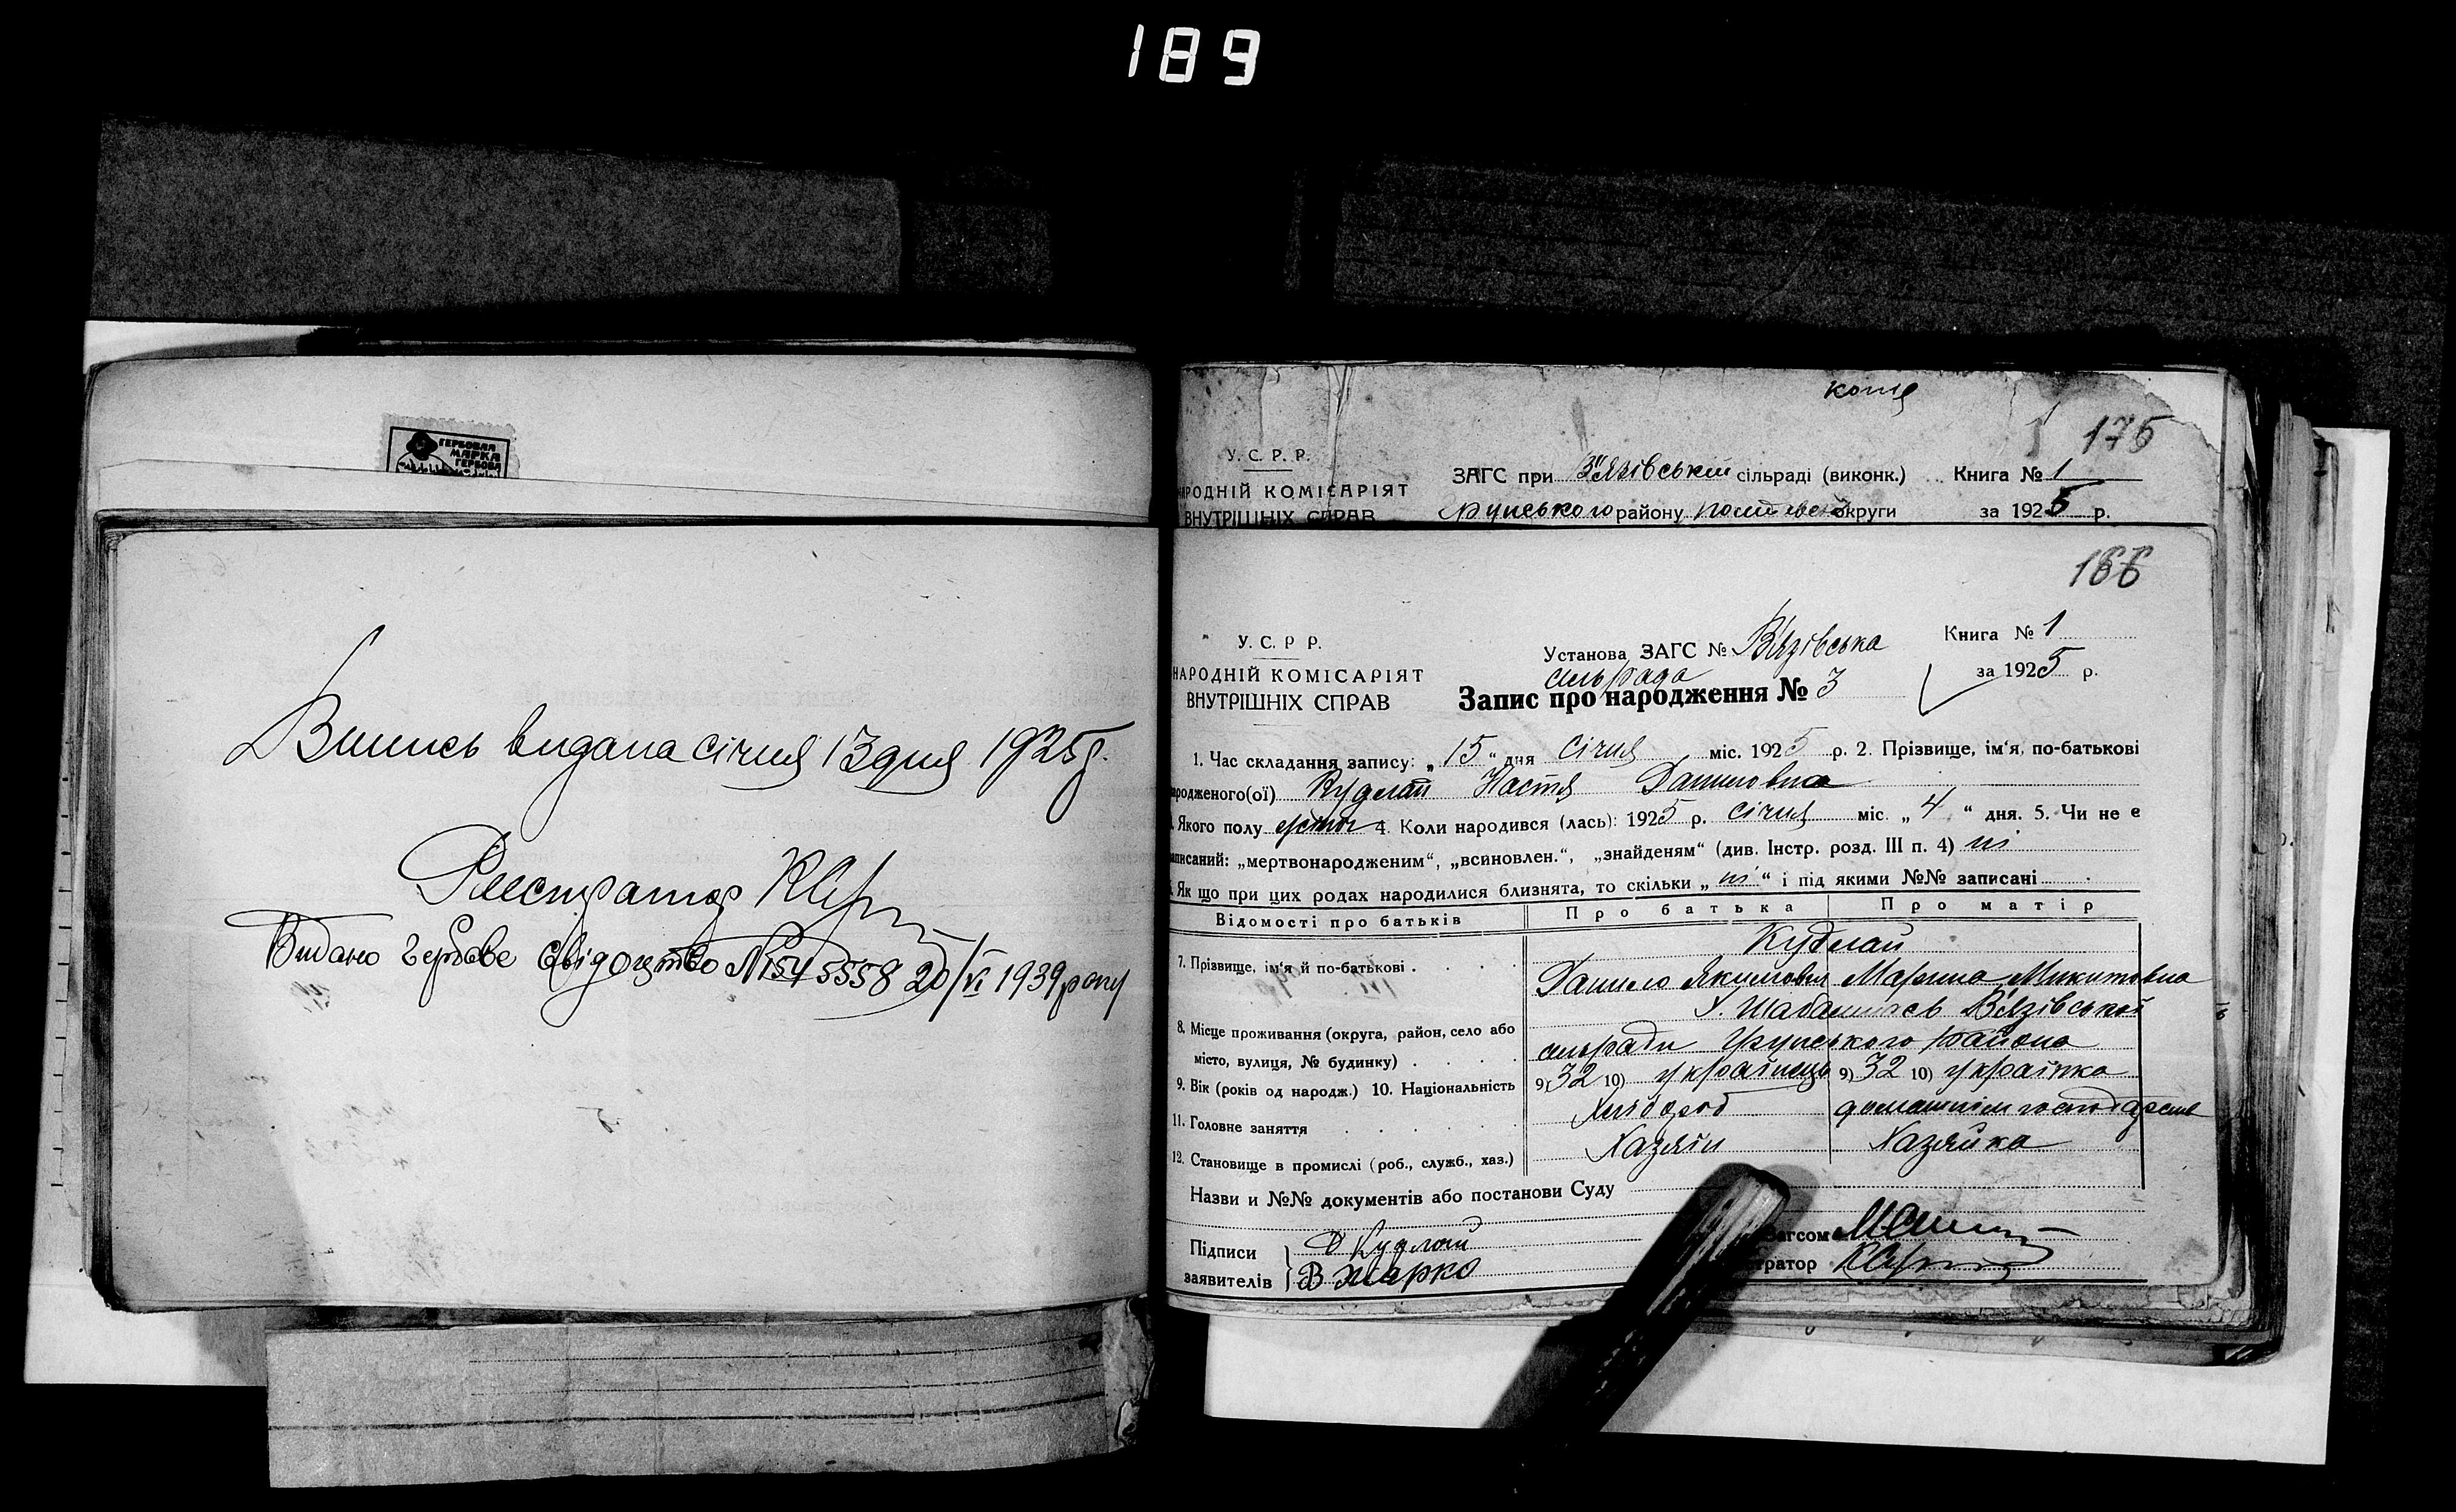 189
ГЕРБОВАЯ
МАРКА
ГЕРБОВА
Випись видана січня 13 дня 1925 р.
Реєстратор
Видано гербове свідоцтво № 1545558 20/VI 1939 року
копія
175
У. С. Р. Р.
НАРОДНІЙ КОМІСАРІЯТ
ВНУТРІШНІХ СПРАВ
ЗАГС при В'язівській сільраді (виконк.) Книга № 1
Грунського району округи за 1925 р.
166
У. С. Р. Р.
НАРОДНІЙ КОМІСАРІЯТ
ВНУТРІШНІХ СПРАВ
Установа ЗАГС № В'язівська Книга № 1
сільрада за 1925 р.
Запис про народження № 3
1. Час складання запису: „15“ дня січня міс. 1925 р. 2. Прізвище, ім'я, по-батькові
народженого(ої) Кудлай Настя Даниловна
Якого полу жіноч 4. Коли народився (лась): 1925 р. січня міс. „4“ дня. 5. Чи не є
записаний: „мертвонародженим“, „всиновлен.“, „знайденям“ (див. Інстр. розд. III п. 4) ні
Як що при цих родах народилися близнята, то скільки „ні“ і під якими №№ записані
Відомості про батьків Про батька Про матір
Кудлай
7. Прізвище, ім'я й по-батькові Данило Якимович Марина Микитовна
Х. В'язівської
8. Місце проживання (округа, район, село або
місто, вулиця, № будинку) сільради Грунського района
9. Вік (років од народж.) 10. Національність 9) 32 10) українець 9) 32 10) українка
11. Головне заняття Хлібороб домашнім господарств
12. Становище в промислі (роб., служб., хаз.) Хазяїн Хазяйка
Назви и №№ документів або постанови Суду
Підписи Д Кудлай загсом
заявителів В Жарко тратор